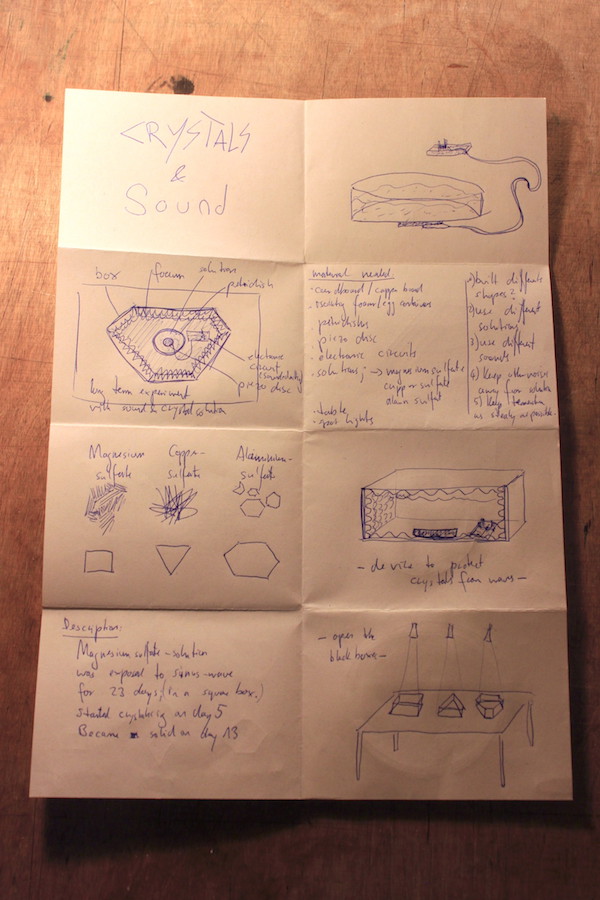 CRYSTALS
&
Sound
box
foam
solution
petridish
electronic
circuit
piezo disc
long term experiment
with sound & crystal solution
material needed:
- cardboard / copper board
- isolating foam/egg containers
- petridishes
- piezo disc
- electronic circuits
- solutions; → magnesium sulfate
copper sulfate
alaun sulfat
- table
- spot lights
1) built different
shapes?
2) use different
solutions
3) use different
sounds
4) keep other waves
away from
5) keep
as steady as possible
Magnesium
sulfate
Copper-
sulfate
Aluminium-
sulfate
- device to protect
crystals from waves -
Description:
Magnesium sulfate - solution
was exposed to sinus-wave
for 23 days, (in a square box.)
Started crystalizing on day 5
Became solid on day 13
- open the
black boxes -